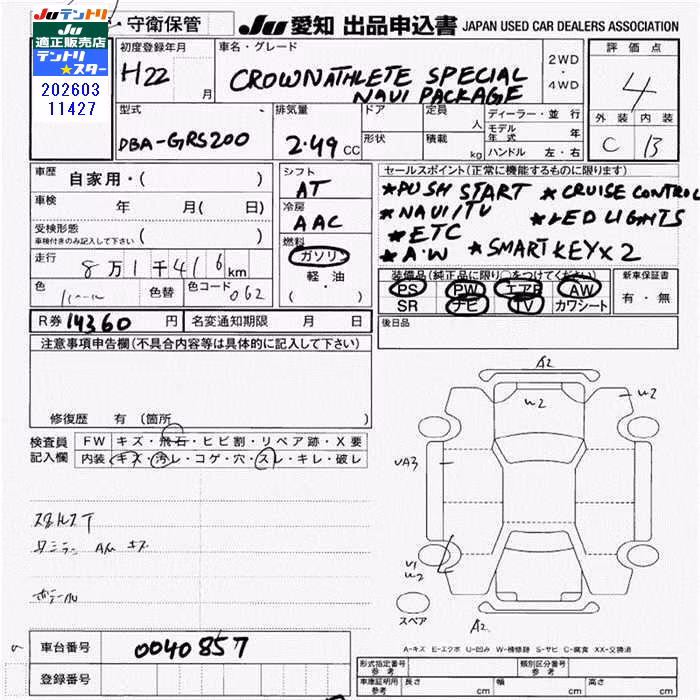 JUテントリ 守衛保管 JU 愛知 出品申込書 JAPAN USED CAR DEALERS ASSOCIATION
JU
適正販売店
テントリ
★スター
202603
11427
初度登録年月
H22 月
車名・グレード
CROWN ATHLETE SPECIAL
NAVI PACKAGE
2WD
・
4WD
評価点
4
外装 内装
C B
型式
DBA-GRS200
排気量
2.49 CC
ドア
形状
定員 人
積載 kg
ディーラー・並行
モデル年式 年
ハンドル 左・右
車歴
自家用・( )
車検 年 月( 日)
受検形態
車検付きのみ記入して下さい ( )
走行 8万1千416km
色 色替 色コード 062
シフト
AT
冷房
AAC
燃料
ガソリン
軽・油
( ・ )
セールスポイント(正常に機能するものに限ります)
★PUSH START ★CRUISE CONTROL
★NAVI/TV ★LED LIGHTS
★ETC
★A.W ★SMART KEY×2
装備品(純正品に限り○をつけてください)
PS PW エアB AW
SR ナビ TV カワシート
新車保証書
有・無
R券 14360 円 名変通知期限 月 日
後日品
注意事項申告欄(不具合内容等は具体的に記入して下さい)
修復歴 有(箇所 )
検査員
記入欄
FW キズ・飛石・ヒビ割・リペア跡・X要
内装 キズ・汚レ・コゲ・穴・スレ・キレ・破レ
A2
W2
W2
UA3
U1
W2
スペア
A2
A-キズ E-エクボ U-凹み W-補修跡 S-サビ C-腐食 XX-交換済
車台番号 0040857
登録番号
形式指定番号
参考
類別区分番号
参考
車庫証明用
参考
長さ cm 幅 cm 高さ cm